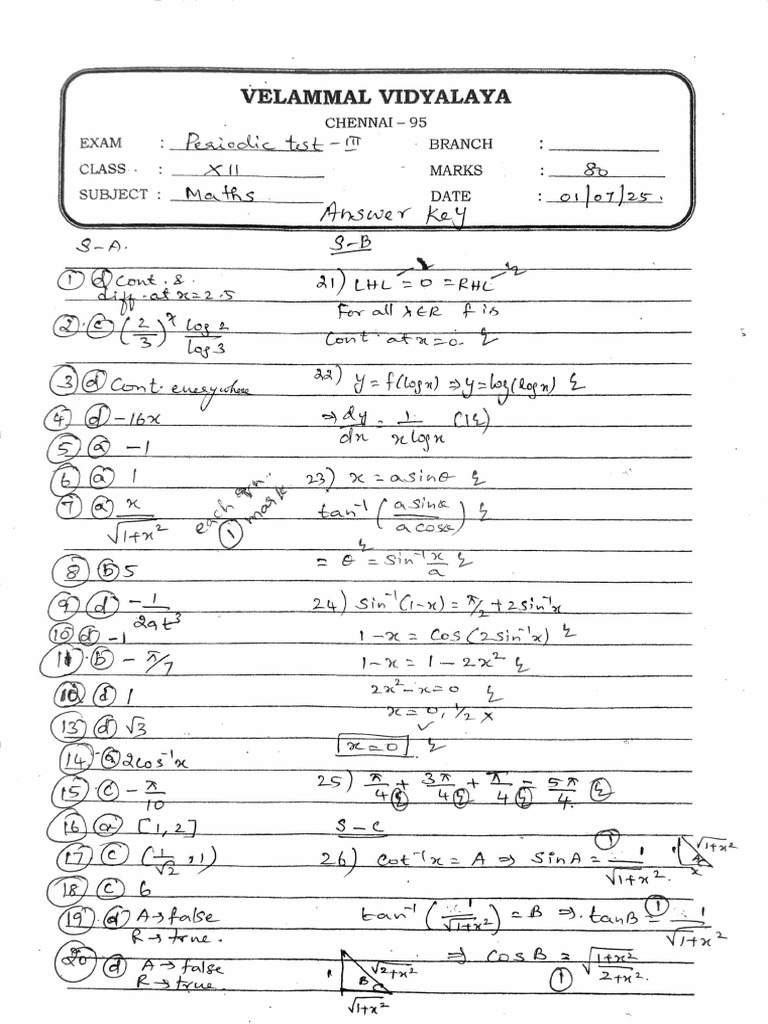 VELAMMAL VIDYALAYA
CHENNAI – 95
EXAM : Periodic test – III
BRANCH :
CLASS : XII
MARKS : 80
SUBJECT : Maths
DATE : 01/07/25.
Answer Key
S-A.
① ⓓ Cont. &
diff. at x=2.5
② ⓒ (2/3)^x log 2/log 3
③ ⓓ Cont. everywhere
④ ⓓ -16x
⑤ ⓐ -1
⑥ ⓐ 1
⑦ ⓐ x/√(1+x²)
each qn.
① mark
⑧ ⓑ 5
⑨ ⓓ -1/(2at³)
⑩ ⓓ -1
⑪ ⓑ -π/7
ⓓ 1
⑬ ⓓ √3
⑭ ⓐ 2cos⁻¹x
⑮ ⓒ -π/10
⑯ ⓐ [1,2]
⑰ ⓒ (1/√2, 1)
⑱ ⓒ 6
⑲ ⓓ A→false
R→true.
⑳ ⓓ A→false
R→true.
S-B
21) LHL = 0 = RHL
For all x∈R f is
Cont. at x=0. ½
22) y = f(logx) ⇒ y = log(logx) ½
⇒ dy/dx = 1/(x logx) (1½)
23) x = a sinθ ½
tan⁻¹(a sinθ/a cosθ) ½
= θ ½ = sin⁻¹ x/a ½
24) sin⁻¹(1-x) = π/2 + 2sin⁻¹x
1-x = cos(2sin⁻¹x) ½
1-x = 1-2x² ½
2x²-x=0 ½
x=0, 1/2 ×
✓
x=0. ½
25) π/4 ½ + 3π/4 ½ + π/4 ½ = 5π/4. ½
S-C
26) cot⁻¹x = A ⇒ sinA = 1/√(1+x²). ①
1 A x √(1+x²)
tan⁻¹(1/√(1+x²)) = B ⇒ tanB = 1/√(1+x²) ①
⇒ cosB = √((1+x²)/(2+x²)). ①
1 B √(2+x²)
√(1+x²)